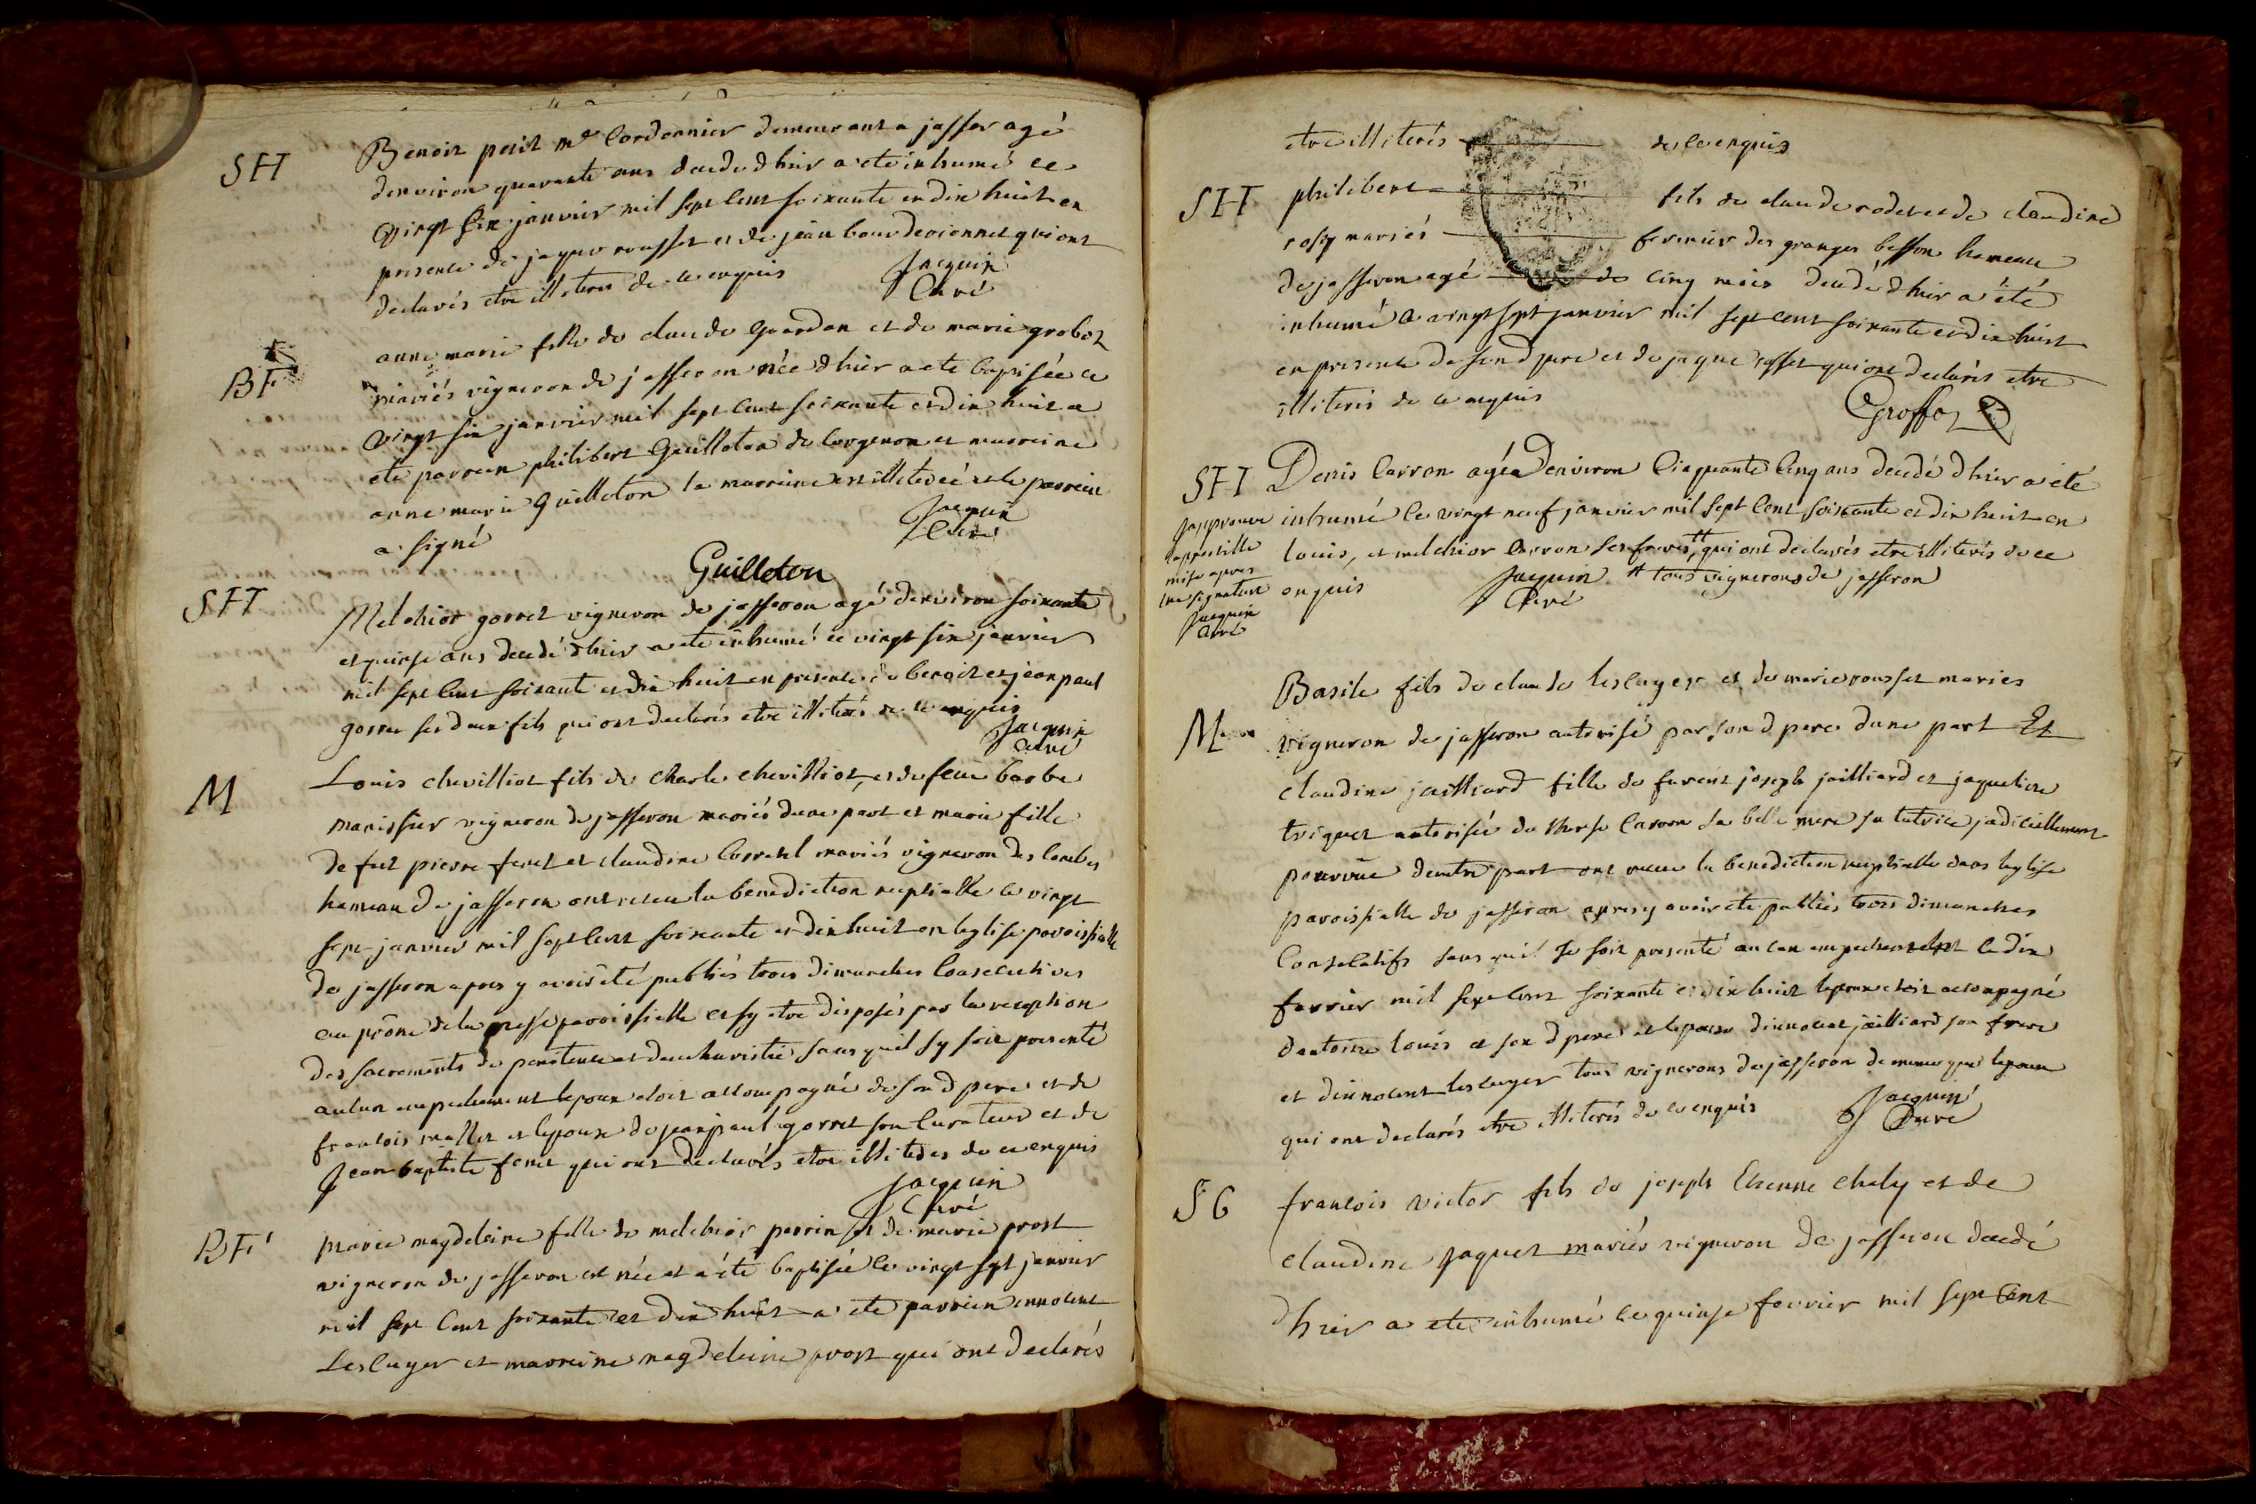 SH
Benoit petit md Cordonnier demeurant a jasseron agé
denviron quarante ans decedé dhier a ete inhumé ce
vingt six janvier mil sept cent soixante et dix huit en
presence de jaque rousset et de jean qui ont
declarés etre illiterés de ce enquis Jacquin
Curé
BF
anne marie fille de claude et de marie groboz
mariés vigneron de jasseron née dhier a ete baptisée ce
vingt six janvier mil sept cent soixante et dix huit a
eté parrain philibert Guilloton de Corgenon et marraine
anne marie Guilloton la marraine est illeterée et le parrain
a signé Jacquin
Curé
Guilloton
SH
Melchior gorret vigneron de jasseron agé denviron soixante
et quinse ans decedé dhier a ete inhumé ce vingt six janvier
mil sept cent soixante et dix huit en presence de benoit et jean paul
gorret ses deux fils qui ont declarés etre illiterés de ce enquis
Jacquin
Curé
M
Louis chevilliot fils de charle chevilliot, et de feue barbe
manissier vigneron de jasseron mariés dune part et marie fille
de feu pierre feret et claudine mariés vigneron des combes
hameau de jasseron ont receu la benediction nuptialle ce vingt
sept janvier mil sept cent soixante et dix huit en leglise paroissialle
de jasseron apres y avoir été publiés trois dimanches consecutives
au prône de la messe paroissialle et sy etre disposés par la reception
des sacrements de penitence et deucharistie sans quil sy soit presenté
aucun empechement lepoux etoit accompagné de son d pere et de
francois mallet et lepouse de jean paul gorret son curateur et de
Jean baptiste feret qui ont declarés etre illiterés de ce enquis
Jacquin
Curé
BF
Marie magdeleine fille de melchior perrin et de marie prost
vigneron de jasseron est née et a été baptisée le vingt sept janvier
mil sept cent soixante et dix huit a ete parrain innocent
Lescuyer et marraine magdeleine prost qui ont declarés
etre illiterés de ce enquis
SH
philibert fils de claude rodet et de claudine
rosy mariés fermier des granges besson hameau
de jasseron agé de cinq mois decedé dhier a été
inhumé ce vingt sept janvier mil sept cent soixante et dix huit
en presence de son d pere et de jaque rosset qui ont declarés etre
illiterés de ce enquis
Groffoz
SH
Denis Carron agé denviron Cinquante Cinq ans decedé dhier a été
inhumé le vingt neuf janvier mil sept cent soixante et dix huit en
louis, et melchior Carron ses freres # qui ont declarés etre illiterés de ce
enquis Jacquin # tous vignerons de jasseron
Curé
japprouve
lappostille
mise apres
ma signature
Jacquin
Curé
M
Basile fils de claude lescuyer et de marie rousset mariés
vigneron de jasseron autorisé par son d pere dune part Et
claudine jailliard fille de furent joseph jailliard et jaqueline
triquet autorisée de therese Carron sa belle mere sa tutrice judiciellement
pourvüe dautre part ont receu la benediction nuptialle dans leglise
paroissialle de jasseron apres y avoir ete publiés trois dimanches
Consecutifs sans quil se soit presenté aucun empechement le dix
fevrier mil sept cent soixante et dix huit lepoux etoit accompagné
dantoine louis et son d pere et lepouse dinnocent jailliard son frere
et dinnocent lescuyer tous vignerons de jasseron de meme que lepoux
qui ont declarés etre illiterés de ce enquis Jacquin
Curé
SG
francois victor fils de joseph Etienne chaly et de
claudine jaquet mariés vigneron de jasseron decedé
dhier a ete inhumé ce quinse fevrier mil sept cent